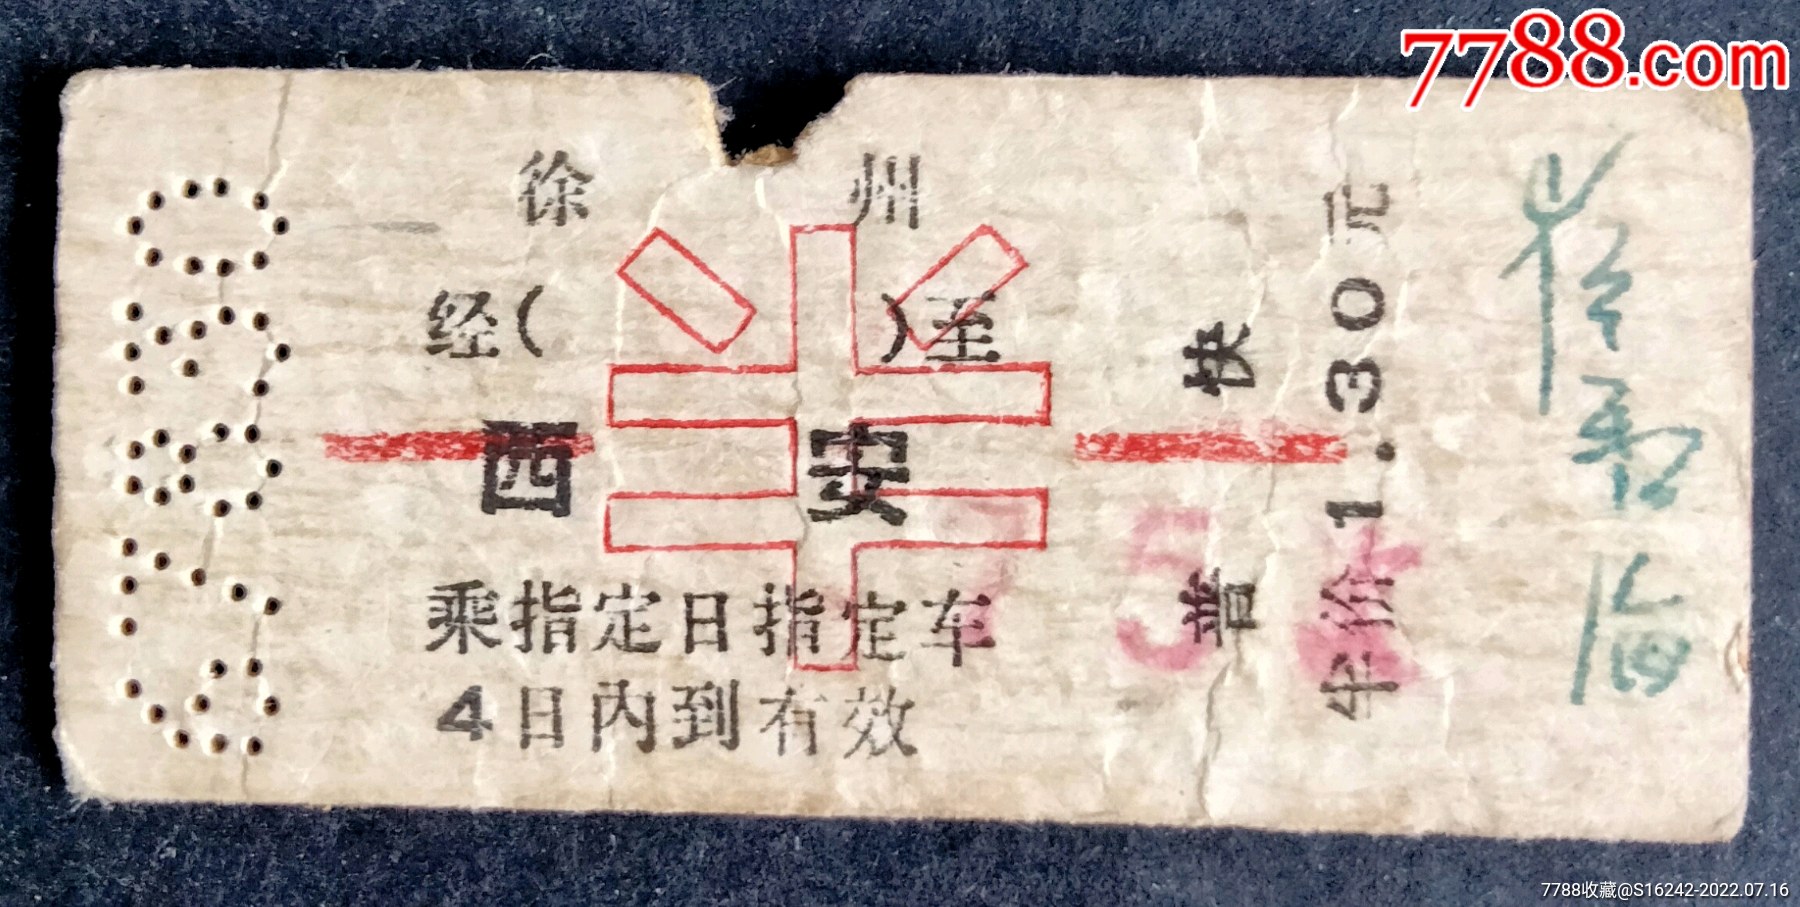 7788.com
徐州
经( )至
西安
半
乘指定日指定车
4日内到有效
普快
半价1.30元
7788收藏@S16242-2022.07.16